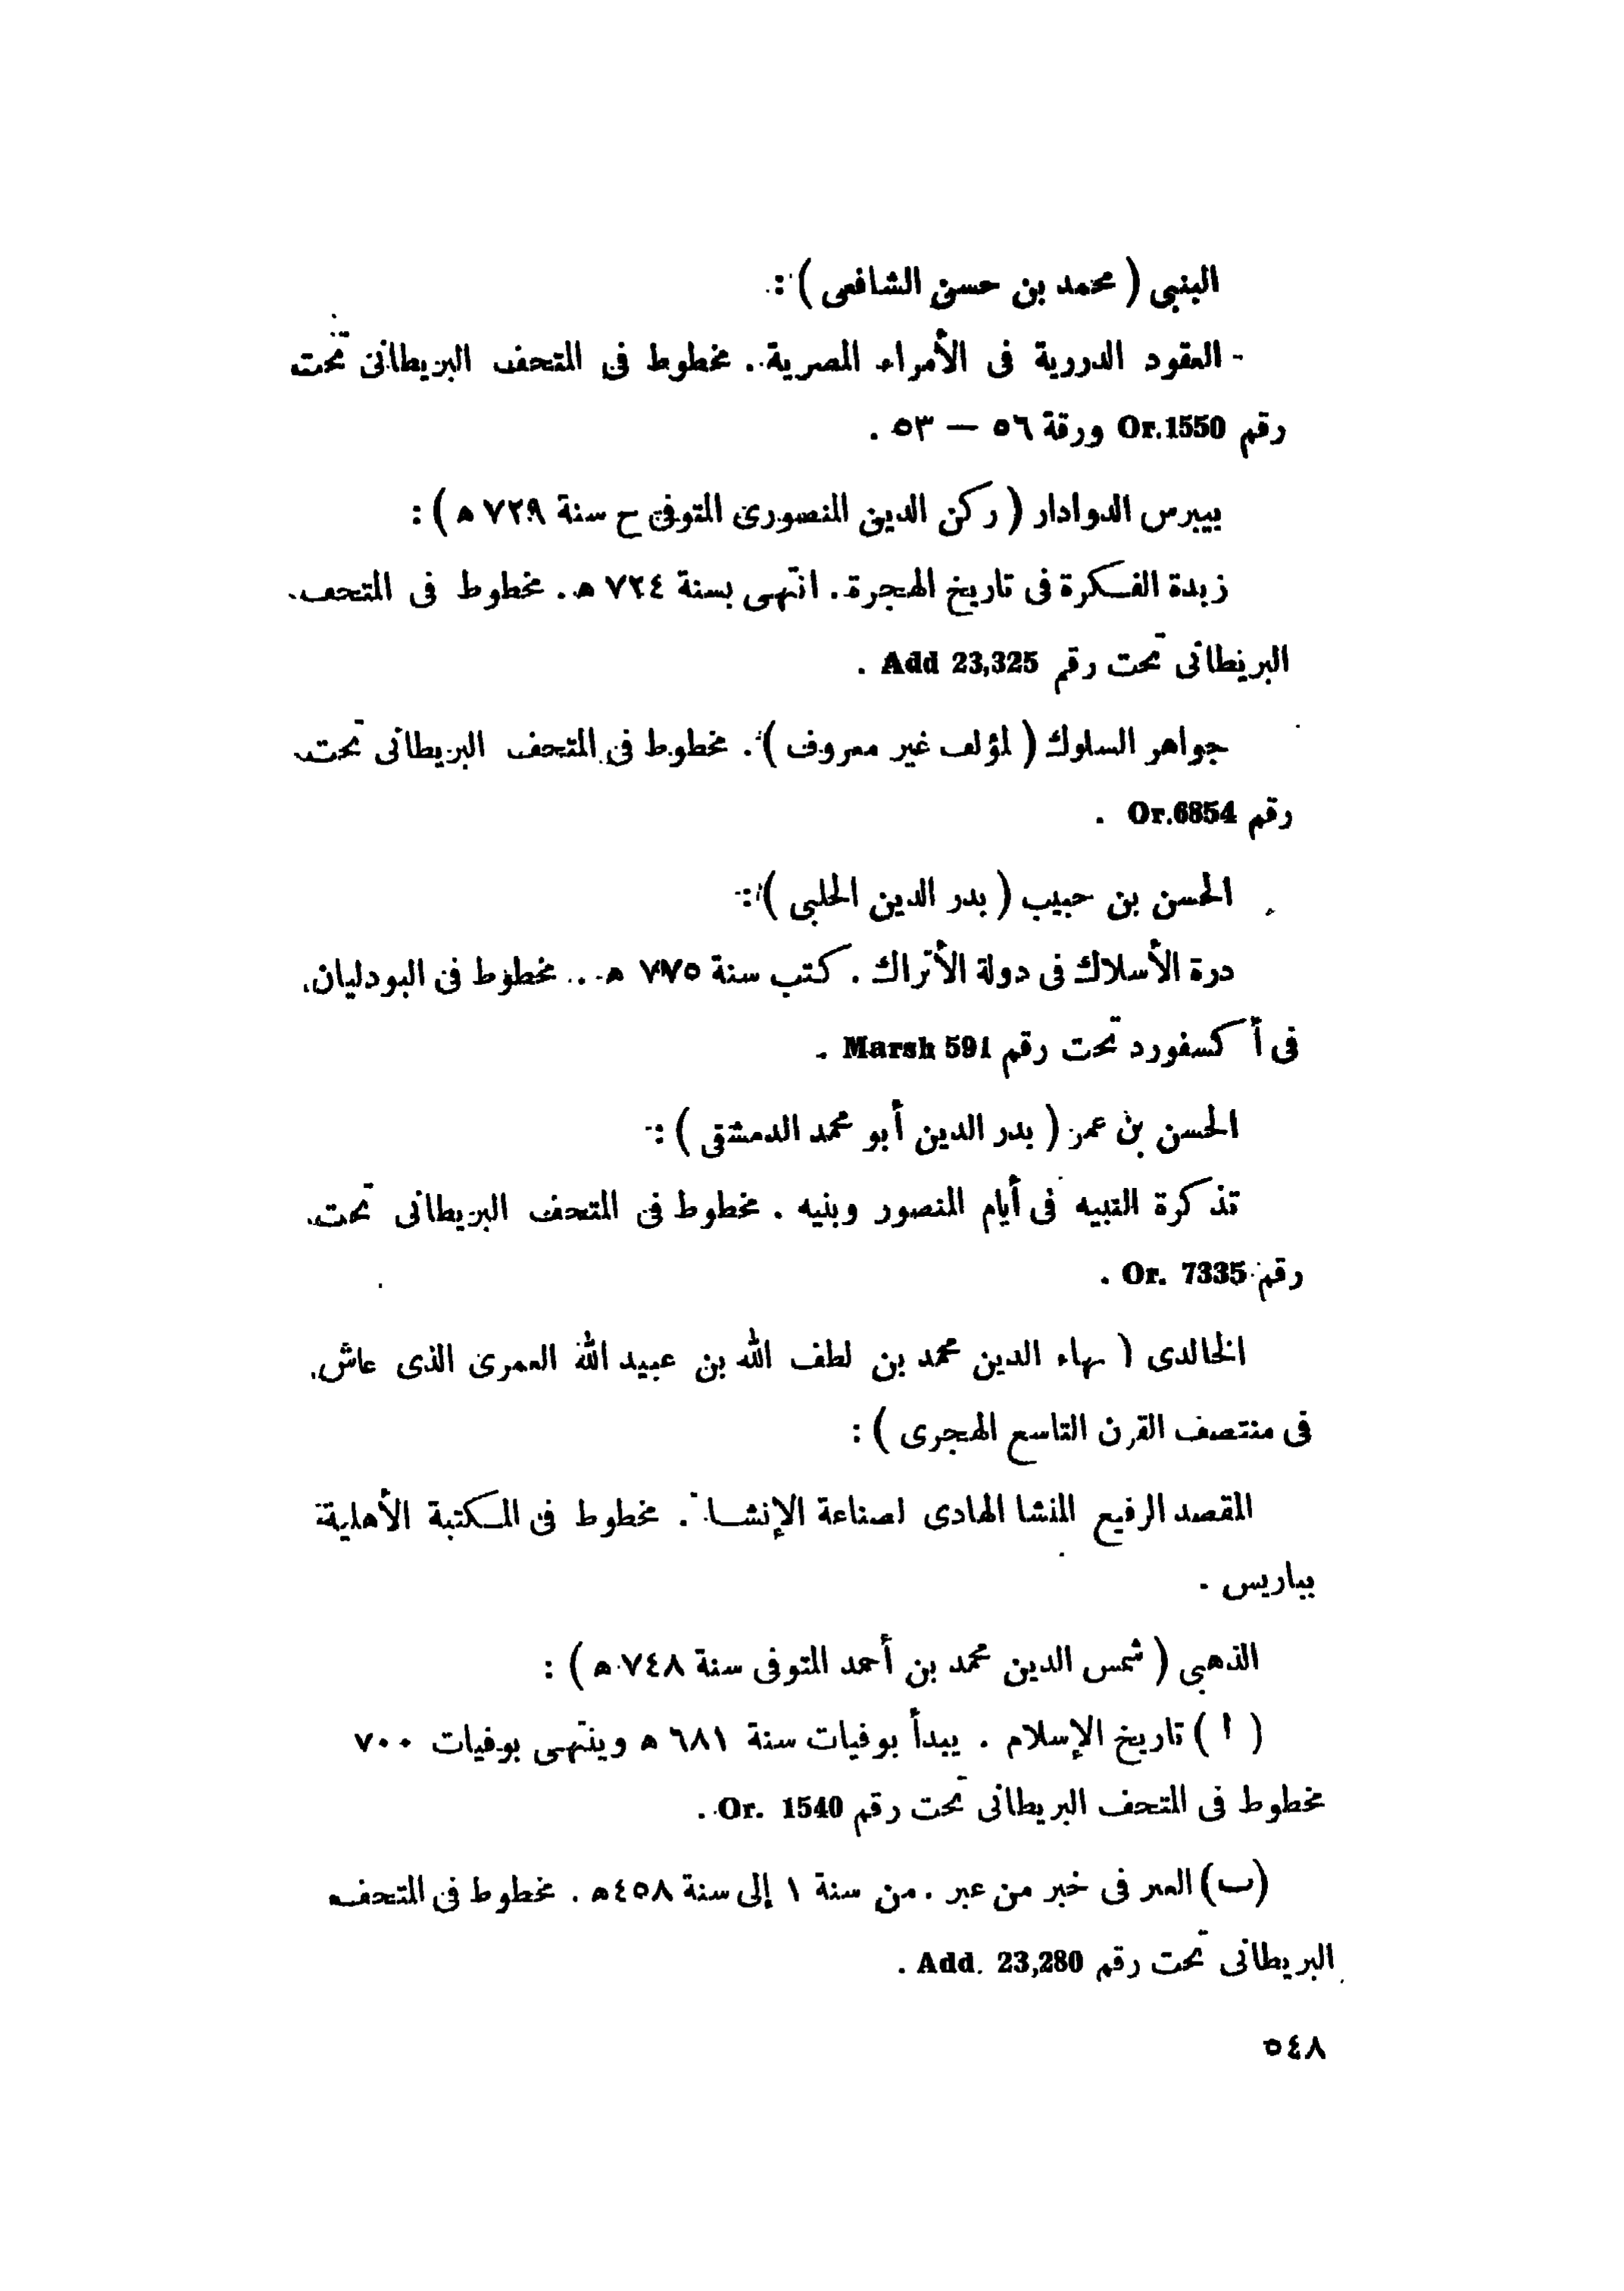 البنبي ( محمد بن حسن الشافعى ) :
- العقود الدررية فى الأمراء المصرية . مخطوط فى المتحف البريطانى تحت
رقم Or.1550 ورقة ٥٦ — ٥٣ .
بيبرس الدوادار ( ركن الدين المنصورى المتوفى ح سنة ٧٢٩ ه ) :
زبدة الفكرة فى تاريخ الهجرة . انتهى بسنة ٧٢٤ ه . مخطوط فى المتحف
البريطانى تحت رقم Add 23,325 .
جواهر السلوك ( لمؤلف غير معروف ) . مخطوط فى المتحف البريطانى تحت
رقم Or.6854 .
الحسن بن حبيب ( بدر الدين الحلبى ) :
درة الأسلاك فى دولة الأتراك . كتب سنة ٧٧٥ ه . مخطوط فى البودليان
فى أكسفورد تحت رقم Marsh 591 .
الحسن بن عمر ( بدر الدين أبو محمد الدمشقى ) :
تذكرة التبيه فى أيام المنصور وبنيه . مخطوط فى المتحف البريطانى تحت
رقم Or. 7335 .
الخالدى ( بهاء الدين محمد بن لطف الله بن عبيد الله العمرى الذى عاش
فى منتصف القرن التاسع الهجرى ) :
المقصد الرفيع المنشا الهادى لصناعة الإنشا . مخطوط فى المكتبة الأهلية
بباريس .
الذهبى ( شمس الدين محمد بن أحمد المتوفى سنة ٧٤٨ ه ) :
( ا ) تاريخ الإسلام . يبدأ بوفيات سنة ٦٨١ ه وينتهى بوفيات ٧٠٠
مخطوط فى المتحف البريطانى تحت رقم Or. 1540 .
(ب) العبر فى خبر من عبر . من سنة ١ إلى سنة ٤٥٨ه . مخطوط فى المتحف
البريطانى تحت رقم Add. 23,280 .
٥٤٨